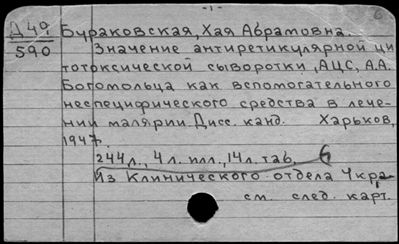 - 1 -
6
Д 49
590
Бураковская, Хая Абрамовна.
Значение антиретикулярной ци
тотоксической сыворотки, АЦС, А.А.
Богомольца как вспомогательного
неспецифического средства в лече-
нии малярии. Дисс. канд. Харьков,
1947.
244л., 4л. илл., 14л. таб.
Из Клинического отдела Укра-
см. след. карт.